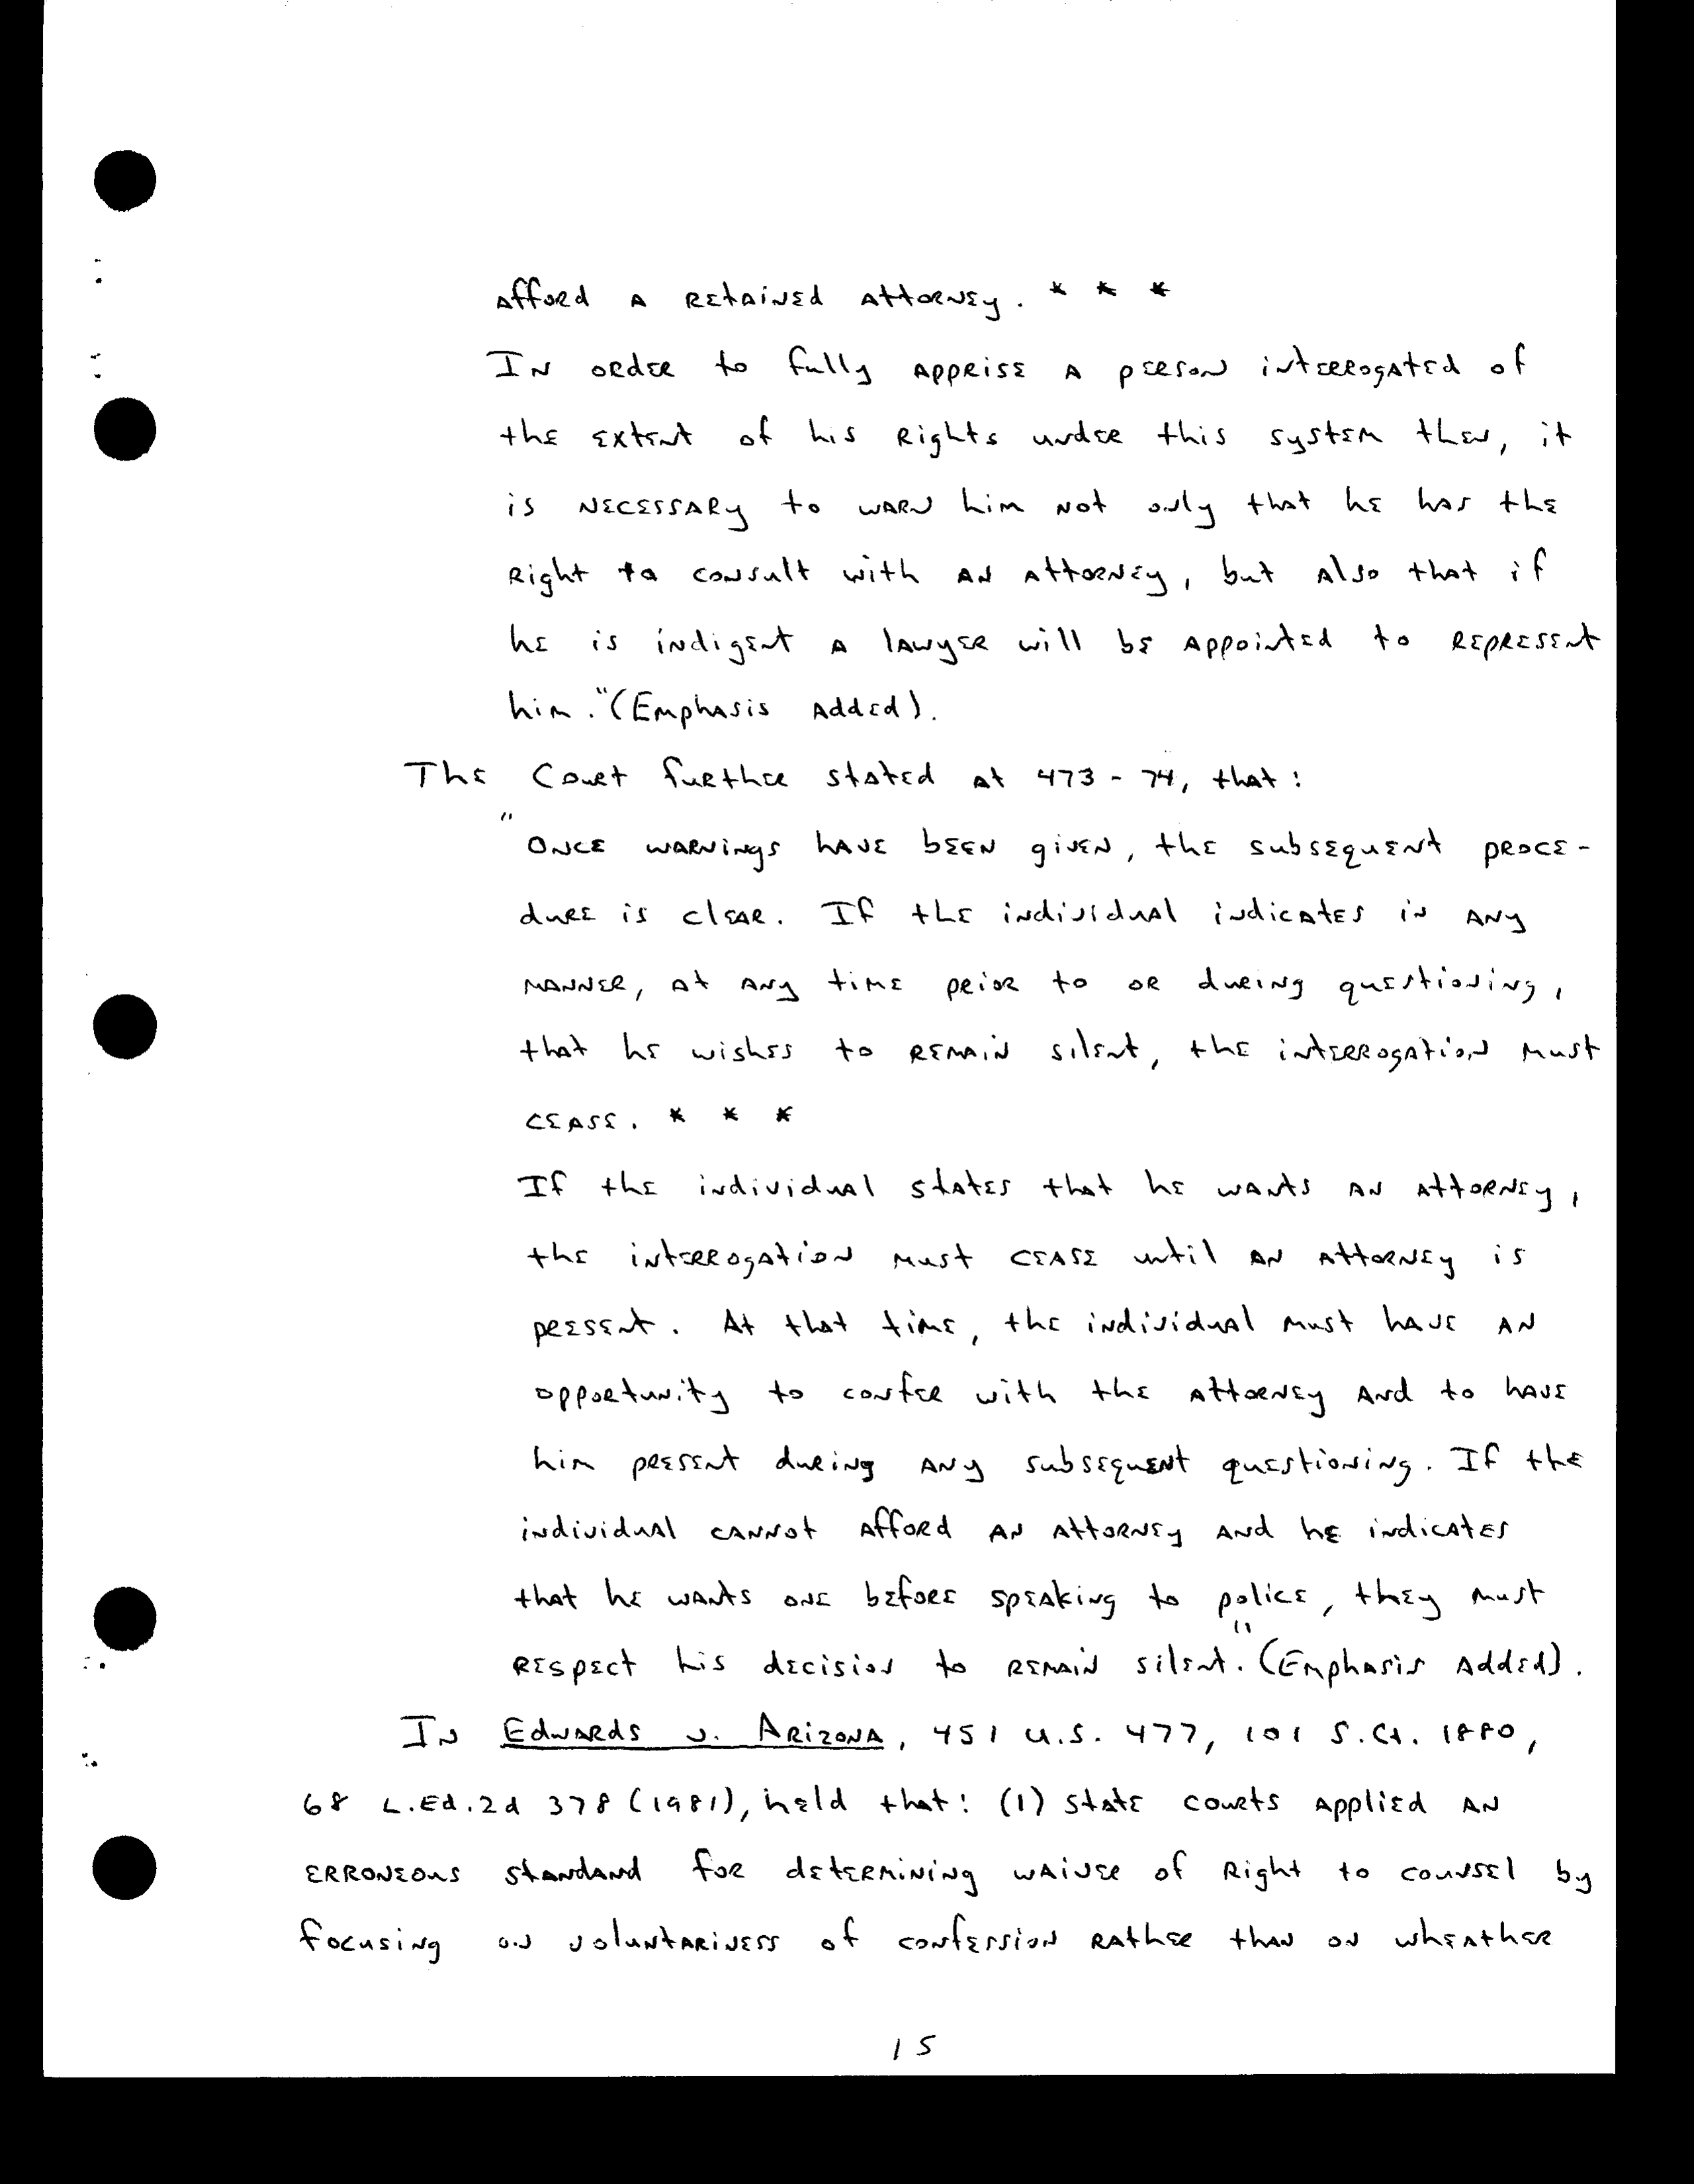 afford a retained attorney. * * *
In order to fully apprise a person interrogated of
the extent of his rights under this system then, it
is necessary to warn him not only that he has the
right to consult with an attorney, but also that if
he is indigent a lawyer will be appointed to represent
him." (Emphasis Added).
The Court further stated at 473-74, that:
"Once warnings have been given, the subsequent proce-
dure is clear. If the individual indicates in any
manner, at any time prior to or during questioning,
that he wishes to remain silent, the interrogation must
cease. * * *
If the individual states that he wants an attorney,
the interrogation must cease until an attorney is
present. At that time, the individual must have an
opportunity to confer with the attorney and to have
him present during any subsequent questioning. If the
individual cannot afford an attorney and he indicates
that he wants one before speaking to police, they must
respect his decision to remain silent." (Emphasis Added).
In Edwards v. Arizona, 451 U.S. 477, 101 S.Ct. 1880,
68 L.Ed.2d 378 (1981), held that: (1) state courts applied an
erroneous standard for determining waiver of right to counsel by
focusing on voluntariness of confession rather than on wheather
15